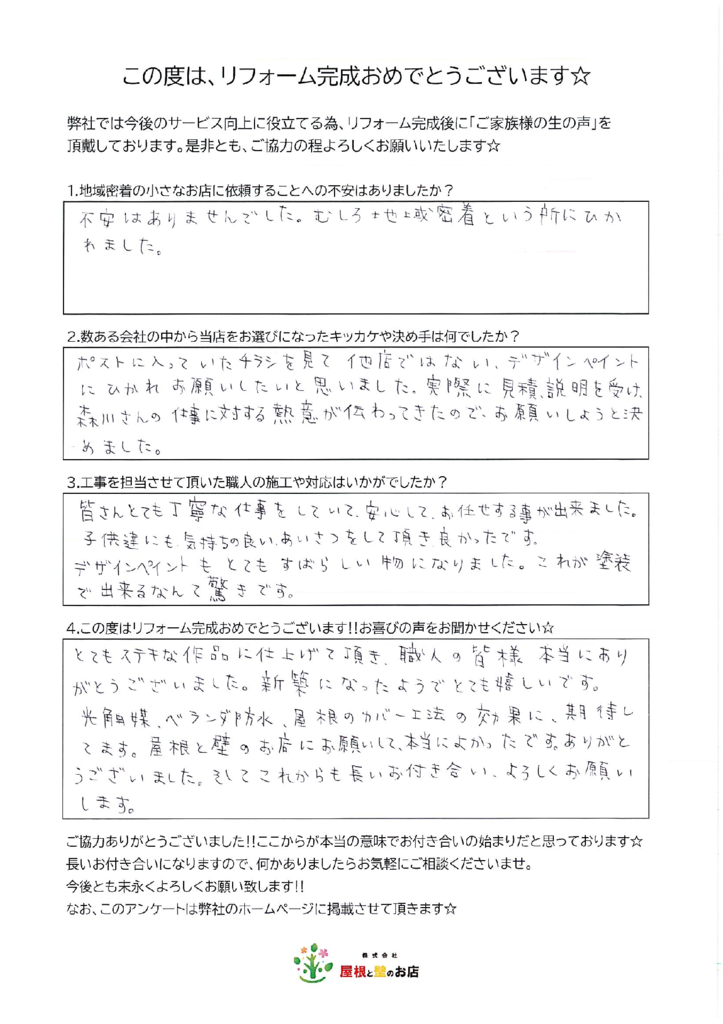 この度は、リフォーム完成おめでとうございます☆
弊社では今後のサービス向上に役立てる為、リフォーム完成後に「ご家族様の生の声」を
頂戴しております。是非とも、ご協力の程よろしくお願いいたします☆
1.地域密着の小さなお店に依頼することへの不安はありましたか？
不安はありませんでした。むしろ地域密着という所にひか
れました。
2.数ある会社の中から当店をお選びになったキッカケや決め手は何でしたか？
ポストに入っていたチラシを見て他店ではない、デザインペイント
にひかれお願いしたいと思いました。実際に見積、説明を受け、
森川さんの仕事に対する熱意が伝わってきたので、お願いしようと決
めました。
3.工事を担当させて頂いた職人の施工や対応はいかがでしたか？
皆さんとても丁寧な仕事をしていて、安心して、お任せする事が出来ました。
子供達にも、気持ちの良い、あいさつをして頂き良かったです。
デザインペイントもとてもすばらしい物になりました。これが塗装
で出来るなんて驚きです。
4.この度はリフォーム完成おめでとうございます!!お喜びの声をお聞かせください☆
とてもステキな作品に仕上げて頂き、職人の皆様本当にあり
がとうございました。新築になったようでとても嬉しいです。
光触媒、ベランダ防水、屋根のカバー工法の効果に、期待し
てます。屋根と壁のお店にお願いして、本当によかったです。ありがと
うございました。そしてこれからも長いお付き合い、よろしくお願い
します。
ご協力ありがとうございました!!ここからが本当の意味でお付き合いの始まりだと思っております☆
長いお付き合いになりますので、何かありましたらお気軽にご相談くださいませ。
今後とも末永くよろしくお願い致します!!
なお、このアンケートは弊社のホームページに掲載させて頂きます☆
株式会社
屋根と壁のお店